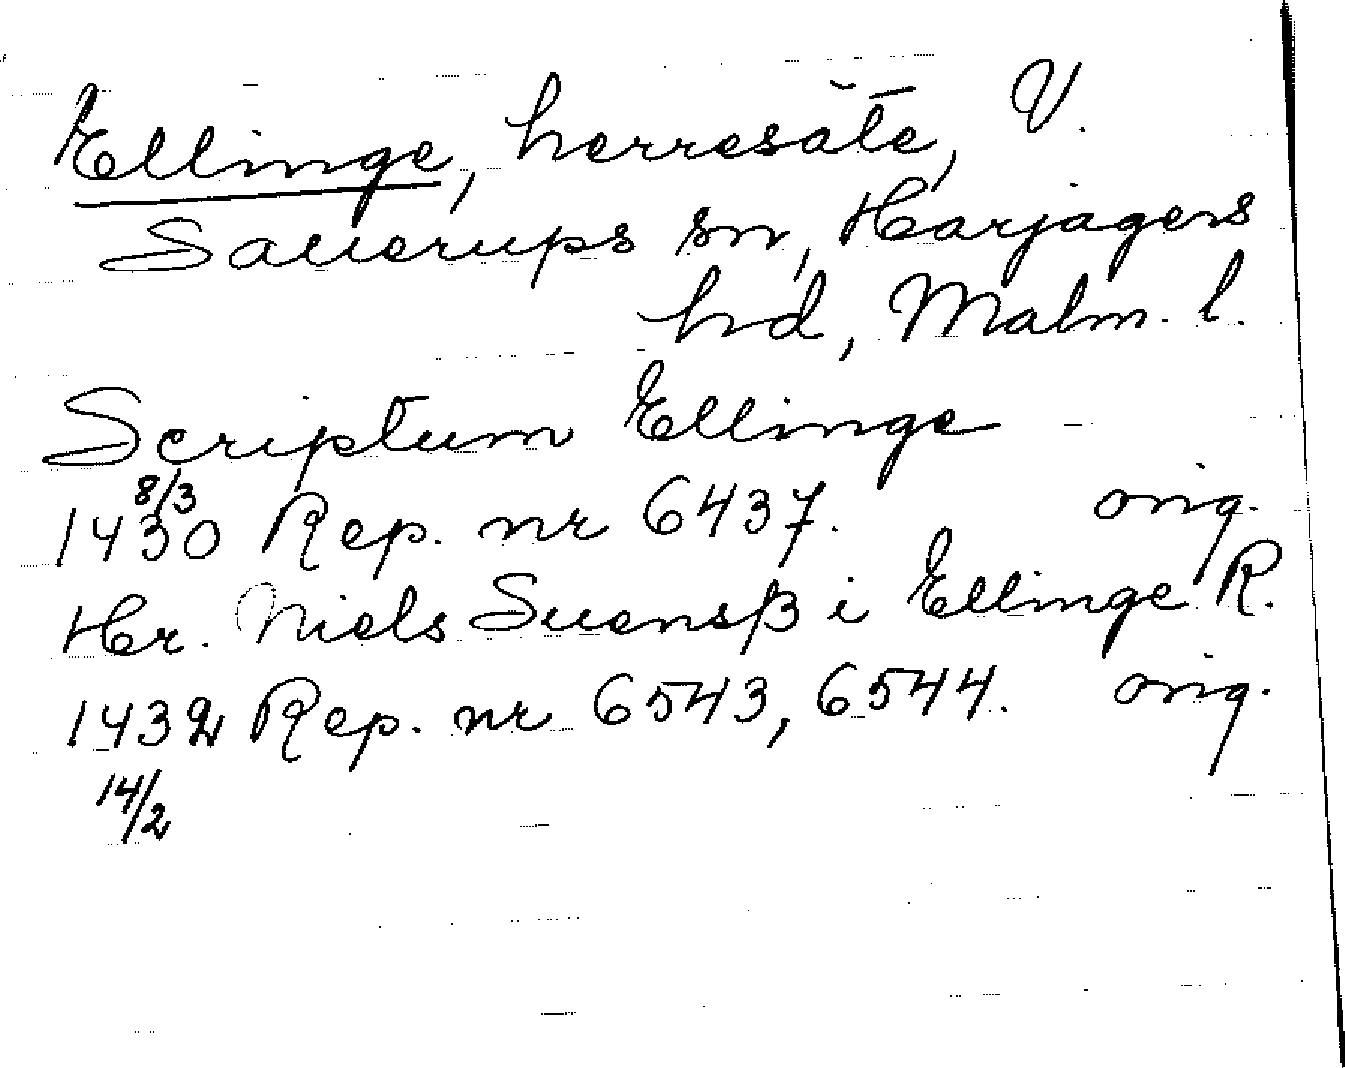 Ellinge, herresäte, V.
Sallerups sn, Harjagers
hd, Malm. l.
Scriptum Ellinge
8/3
1430 Rep. nr 6437. orig.
Hr. Niels Suensß i Ellinge R.
1432 Rep. nr 6543, 6544. orig.
14/2